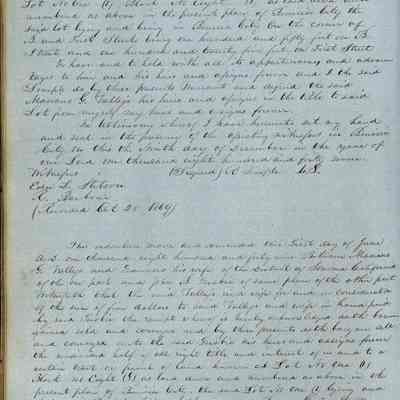 Lot No One (1) Block No Eight (8) as laid down and
numbered as above in the present plan of Benicia City the
said lot lying and being in Benicia City On the corner of
B and First Streets between one hundred and fifty feet on B
Street and one hundred and twenty five feet on First Street
To have and to hold with all its appurtenances and advan
tages to him and his heirs and assigns forever and I the said
Semple do by these presents Warrant and defend the said
Mariano G. Vallejo his heirs and assigns in the title to said
Lot from myself my heirs and assigns forever.
In testimony whereof I have hereunto set my hand
and seal in the presence of the subscribing witnesses in Benicia
City on this the Ninth day of December in the year of
our Lord One thousand eight hundred and forty seven
Witnesses (Signed) R Semple L.S.
(Recorded Oct 20 1849)
This indenture made and concluded this First day of June
A.D. one thousand eight hundred and forty nine Between Mariano
G. Vallejo and Francisca his wife of the District of Sonoma California
of the one part and John A of same place of the other part
Witnesseth that the said Vallejo and wife for and in consideration
of the sum of five dollars to said Vallejo and wife in hand paid
by said the receipt whereof is hereby acknowledged
sold and conveyed and by these presents doth bargain sell
and convey unto the said his heirs and assigns forever
the undivided half of all right title and interest of in and to a
certain Lot or parcel of land known as Lot No One (1)
Block No Eight (8) as laid down and numbered as above in the
present plan of Benicia City, the said Lot No One (1) lying and